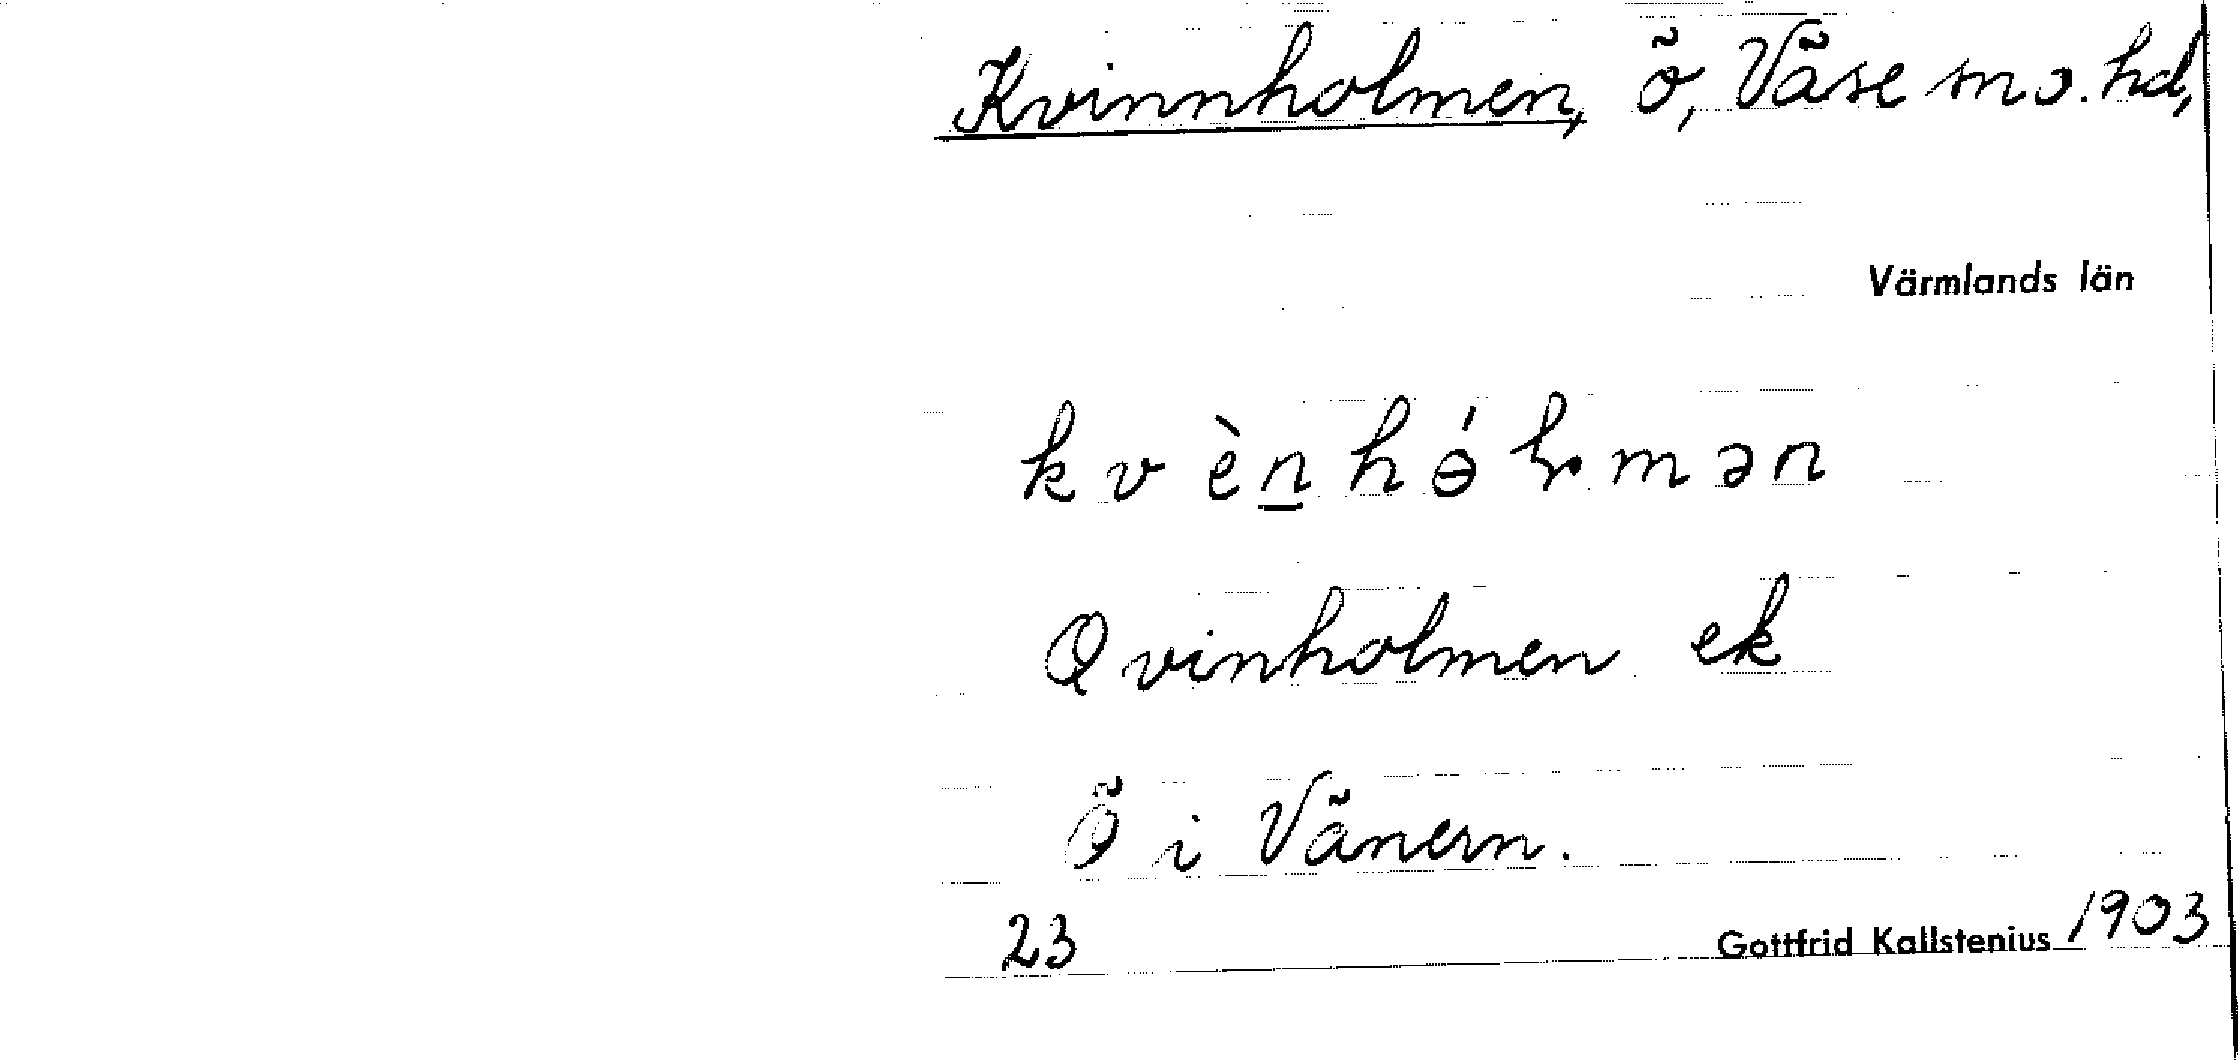 Kvinnholmen, ö, Väse sn o. hd,
Värmlands län
kvèn̲hǿꞎmən
Qvinholmen ek
Ö i Vänern.
23 Gottfrid Kallstenius 1903